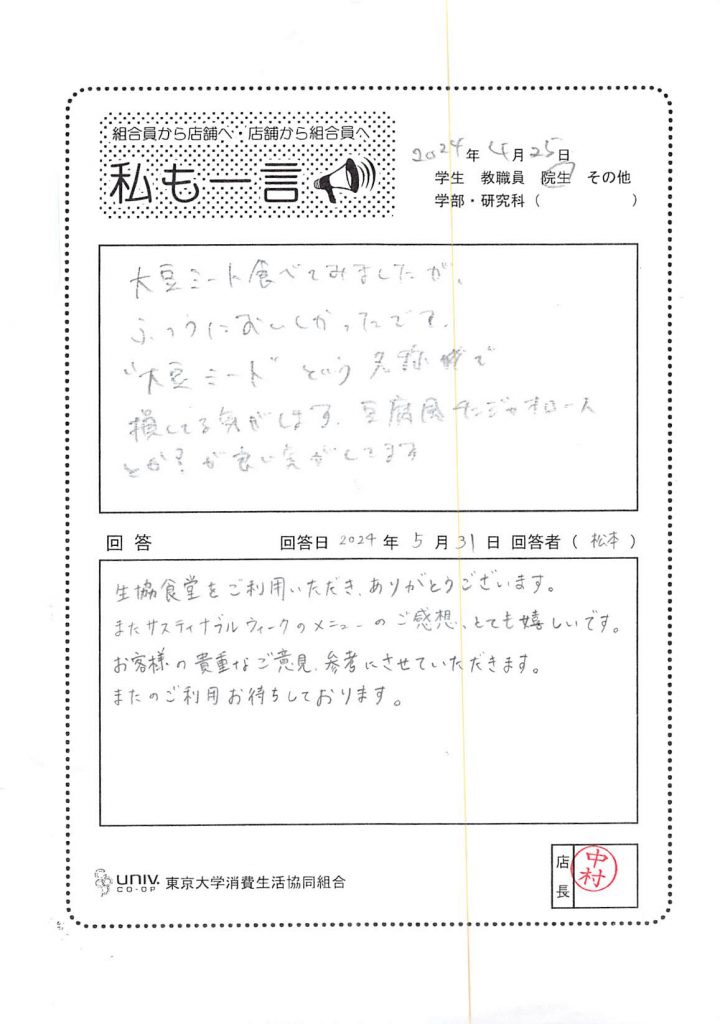 組合員から店舗へ・店舗から組合員へ
私も一言
2024年4月25日
学生 教職員 院生 その他
学部・研究科（ ）
大豆ミート食べてみましたが、
ふつうにおいしかったです。
"大豆ミート" という名称で
損してる気がします。豆腐風チンジャオロース
とか？が良い気がしてます
回答 回答日 2024年5月31日 回答者（松本）
生協食堂をご利用いただき、ありがとうございます。
またサスティナブルウィークのメニューのご感想、とても嬉しいです。
お客様の貴重なご意見、参考にさせていただきます。
またのご利用お待ちしております。
UNIV.
CO-OP
東京大学消費生活協同組合
店長
中村